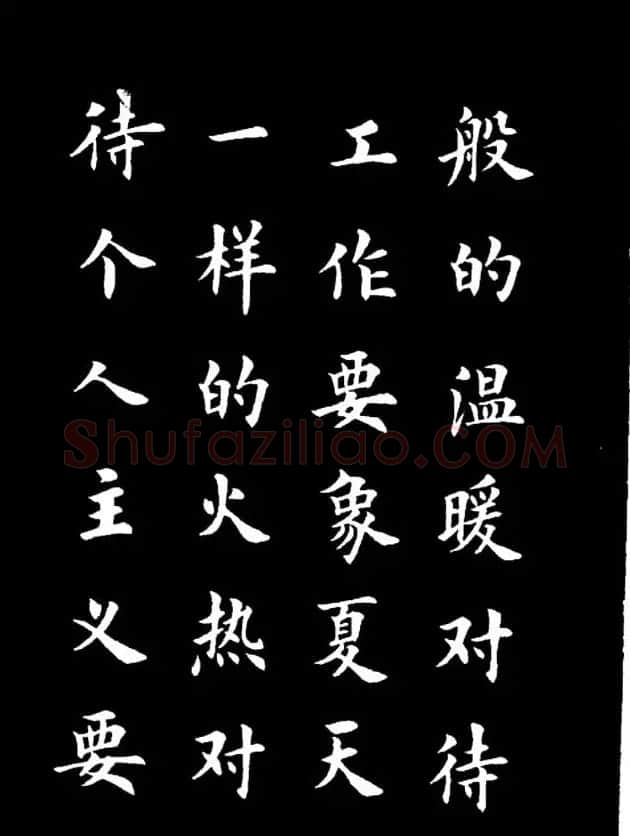 般的温暖对待
工作要象夏天
一样的火热对
待个人主义要
Shufaziliao.COM